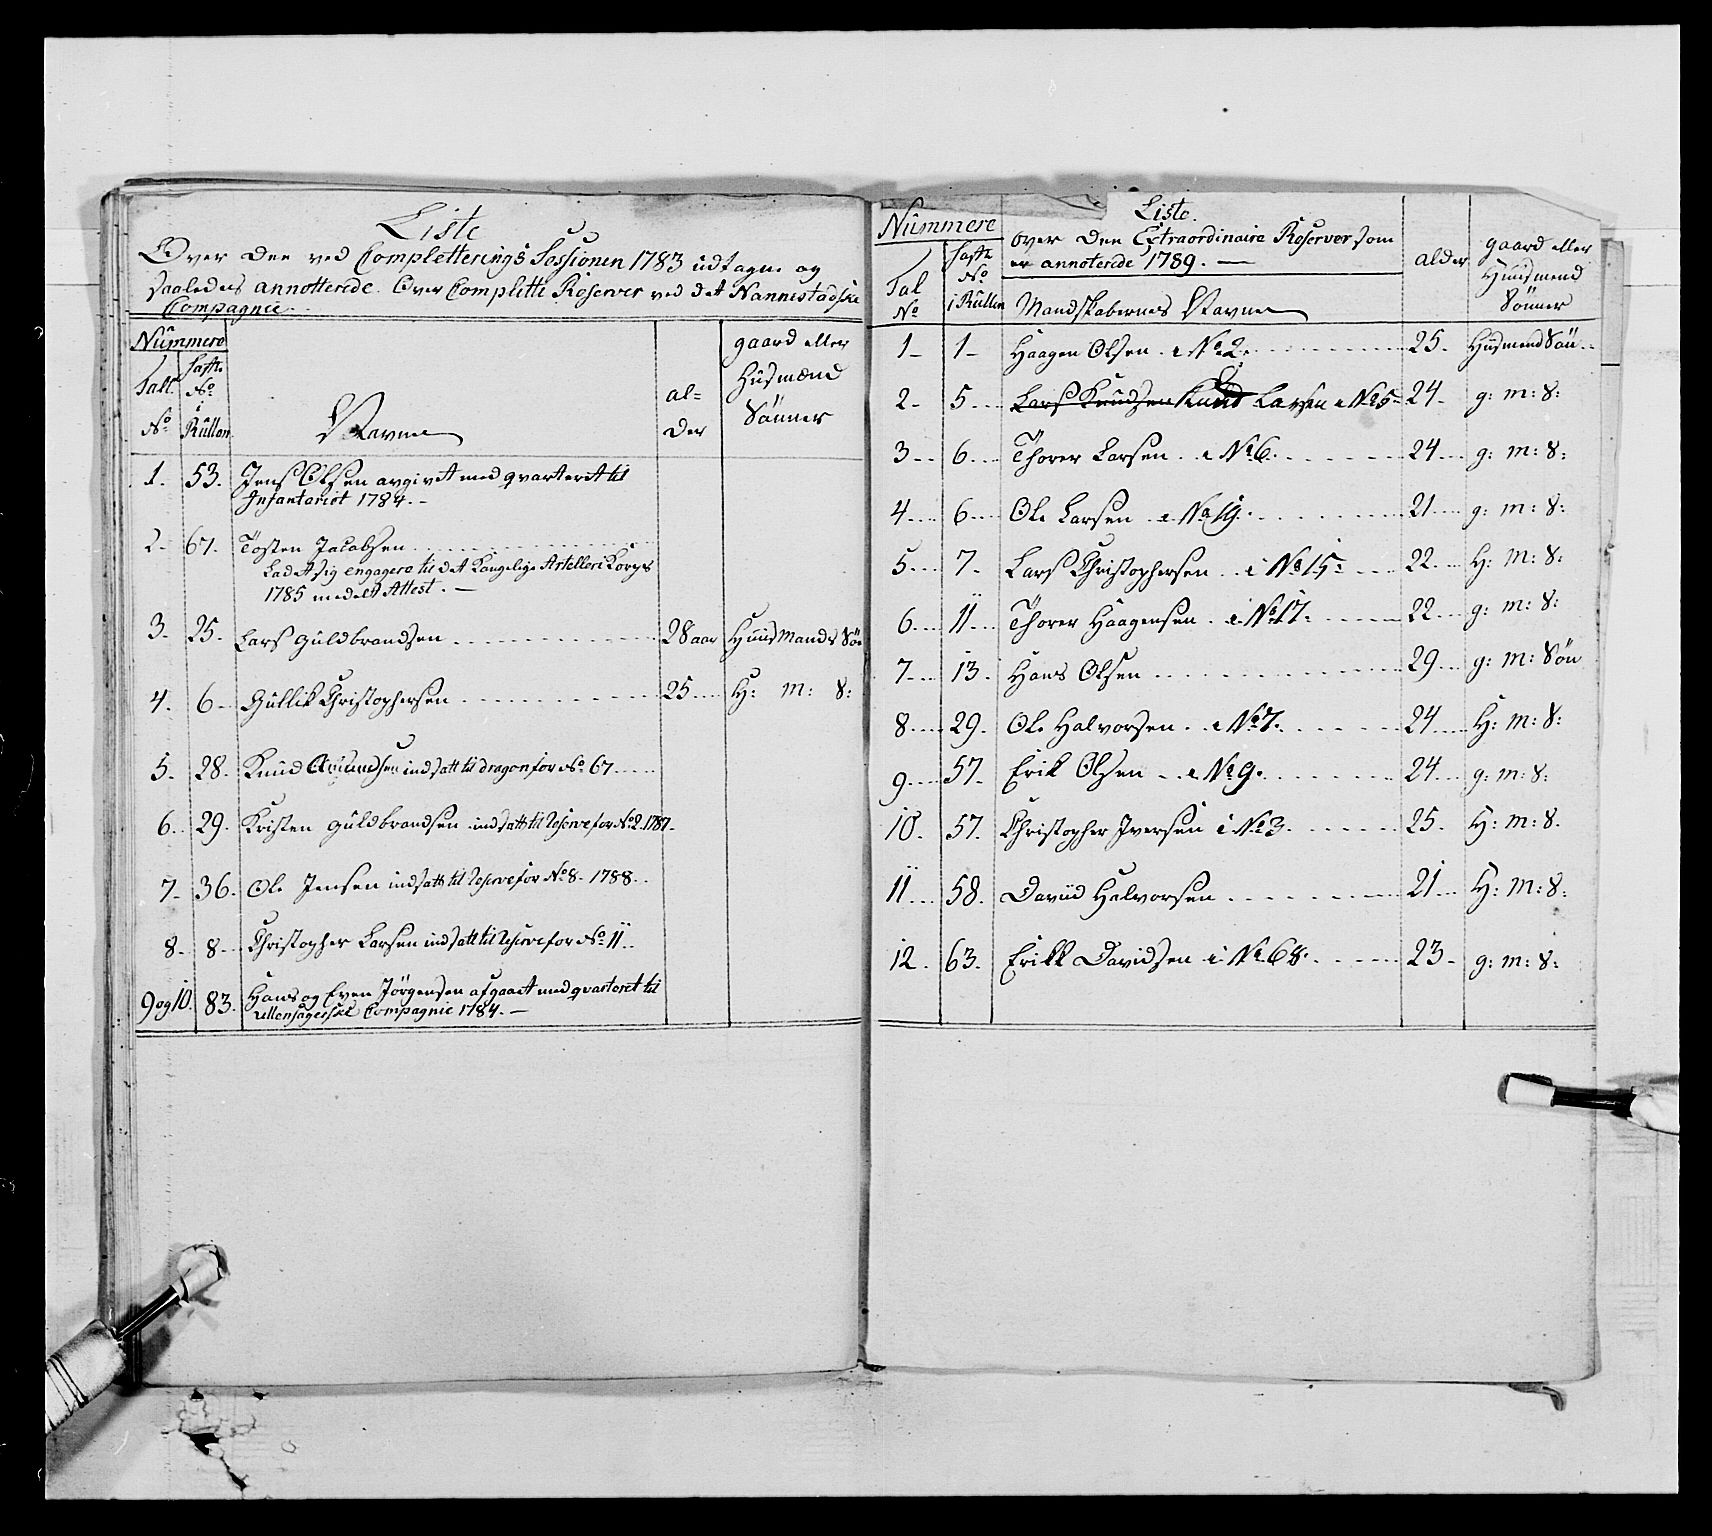 Liste
Over den ved Completterings Sessionen 1783 udtagne og
saaledes annotterede Over Complette Reserver ved det Nannestadske
Compagnie.
Nummere
Tall No
Lægts No i Rullen
Navne
al=
der
gaard eller
Husmænd
Sönner
1. 53. Jens Olsen avgivet med qvarteret til
Infanteriet 1784.
2. 67. Tosten Jacobsen
Ladet sig engagere til det Kongelige Artelleri Korps
1785 med Attest.
3. 25. Lars Guldbrandsen 28 aar Huusmands Sön
4. 6 Gullik Christophersen 25 H: m: S:
5. 28. Knud Amundsen indsatt til dragon for No 67
6. 29. Kristen Guldbrandsen indsatt til Reserve for No 2. 1787.
7. 36. Ole Jensen indsatt til Reserve for No 8. 1788.
8. 8. Christopher Larsen indsatt til Reserve for No 11.
9 og 10. 83. Hans og Even Jörgensen afgaaet med qvarteret til
Ullensagerske Compagnie 1784.
Nummere
Tal No
No i Rullen
Liste.
over den Extraordinaire Reserver som
er annoterede 1789.
Mandskabernes Navne
alder
gaard eller
Huusmend
Sönner
1 1 Haagen Olsen i No 2. 25. Husmend Sön
2. 5 Lars Knudsen Knud Larsen i No 5 24 g: m: S:
3 6 Thorer Larsen i No 6. 24 g: m: S:
4 6 Ole Larsen i No 19. 21 g: m: S:
5 7. Lars Christophersen i No 15 22 H: m: S:
6 11 Thorer Haagensen i No 17. 22 g: m: S:
7 13. Hans Olsen 29 g: m: Sön
8 29. Ole Halvorsen i No 7. 24 H: m: S:
9 57. Erik Olsen i No 9. 24 g: m: S:
10. 57. Christopher Iversen i No 3. 25. H: m: S.
11 58. David Halvorsen 21 H: m: S:
12. 63. Erik Davidsen i No 68. 23 g: m: S: